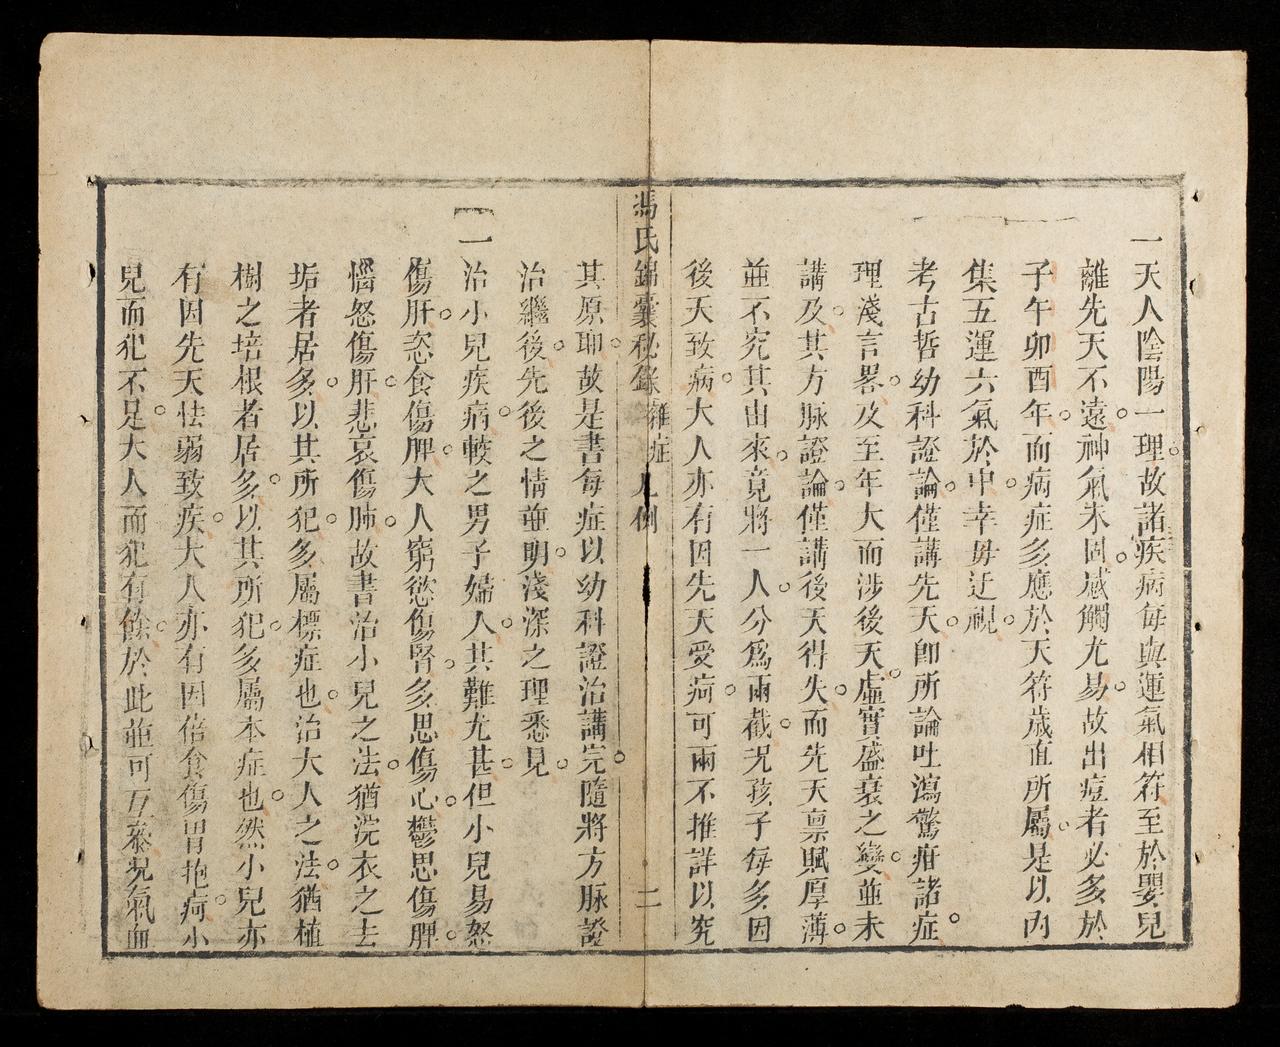 一天人陰陽一理故諸疾病每與運氣相符至於嬰兒
離先天不遠神氣未固感觸尤易故出痘者必多於
子午卯酉年而病症多應於天符歲直所屬是以內
集五運六氣於中幸毋迂視
考古哲幼科證論僅講先天卽所論吐瀉驚疳諸症
理淺言畧及至年大而涉後天虛實盛衰之變並未
講及其方脉證論僅講後天得失而先天禀賦厚薄
並不究其由來竟將一人分爲兩截况孩子每多因
後天致病大人亦有因先天受病可兩不推詳以究
馮氏錦囊秘錄 雜症 凡例 二
其原聊故是書每症以幼科證治講完隨將方脉證
治繼後先後之情並明淺深之理悉見
一治小兒疾病較之男子婦人其難尤甚但小兒易怒
傷肝恣食傷脾大人窮慾傷腎多思傷心鬱思傷脾
惱怒傷肝悲哀傷肺故書治小兒之法猶浣衣之去
垢者居多以其所犯多屬標症也治大人之法猶植
樹之培根者居多以其所犯多屬本症也然小兒亦
有因先天怯弱致疾大人亦有因倍食傷胃抱疴小
兒而犯不足大人而犯有餘於此並可互叅况氣血